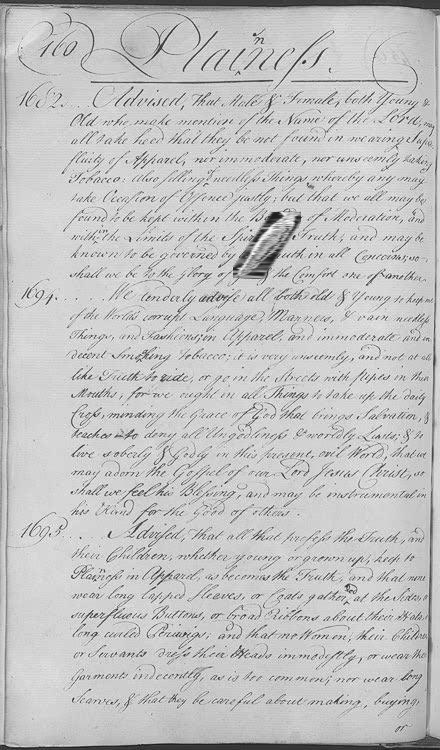 160 Plainness.
1682... Advised, That Male & Female, both Young &
Old who make mention of the Name of the Lord, may
all take heed that they be not found in wearing Supe
fluity of Apparel, nor immoderate, nor unseemly taking
Tobacco: Also selling needless Things whereby any may
take Occasion of Offence justly; but that we all may be
found to be kept within the of Moderation, and
within the Limits of the Spirit Truth; and may be
known to be governed by Truth in all Concerns, so
shall we be to the Glory of & the Comfort one of another.
1694..... We tenderly advise all both old & Young to keep out
of the World's corrupt Language, Manners, & vain needless
Things, and Fashions, in Apparel; and immoderate and in
decent Smoking Tobacco; it is very unseemly, and not at all
like Truth to ride, or go in the Streets with pipes in their
Mouths, for we ought in all Things to take up the daily
Cross, minding the Grace of God that brings Salvation, &
teaches to deny all Ungodliness & worldly Lusts, & to
live soberly & Godly in this present, evil World, that we
may adorn the Gospel of our Lord Jesus Christ, so
shall we feel his Blessing, and may be instrumental in
his Hand for the Good of others.
1695... Advised, That all that profess the Truth, and
their Children, whether young or grown up, keep to
Plainness in Apparel, as becomes the Truth, and that none
wear long lapped Sleeves, or Coats gathered at the Sides, or
superfluous Buttons, or broad Ribbons about their Hats, or
long curled Periwigs; and that no Women, their Children
or Servants dress their Heads immodestly, or wear their
Garments indecently, as is too common; nor wear long
Scarves, & that they be careful about making, buying,
or